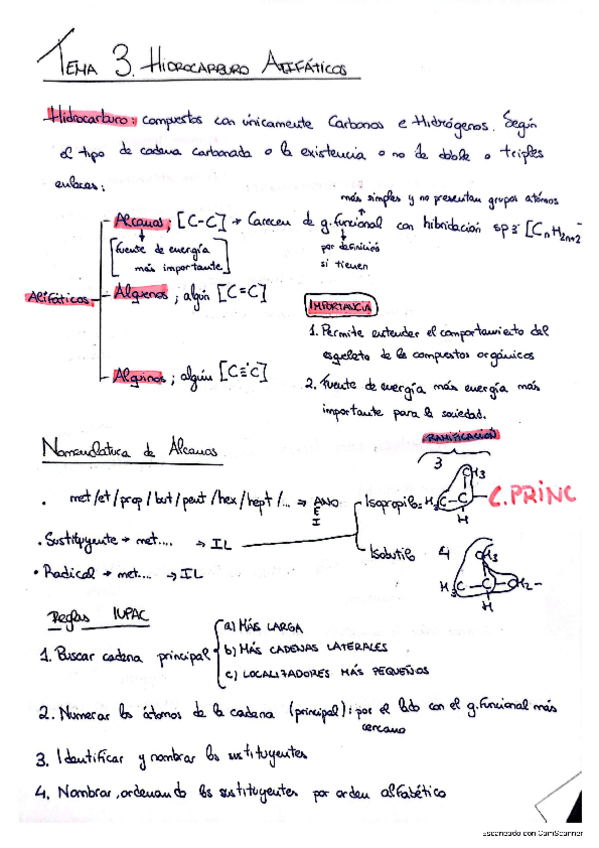 TEMA 3. HIDROCARBURO ALIFÁTICOS
Hidrocarburo: compuestos con únicamente Carbonos e Hidrógenos. Según
el tipo de cadena carbonada o la existencia o no de doble o triples
enlaces:
más simples y no presentan grupos átomos
Alcanos; [C-C] → Carecen de g. funcional con hibridación sp3 [CnH2n+2
[fuente de energía
más importante]
por definición
si tienen
Alifáticos
Alquenos; algún [C=C]
IMPORTANCIA
1. Permite entender el comportamiento del
esqueleto de los compuestos orgánicos
Alquinos; algún [C≡C]
2. Fuente de energía más energía más
importante para la sociedad.
RAMIFICACIÓN
Nomenclatura de Alcanos
3
CH3
. met/et/prop/but/pent/hex/hept/... → ANO
E
I
Isopropilo= H3C-C- C.PRINC
H
. Sustituyente → met.... → IL
Isobutilo 4
CH3
• Radical → met.... → IL
H3C-C-CH2-
H
Reglas IUPAC
1. Buscar cadena principal
a) MÁS LARGA
b) MÁS CADENAS LATERALES
c) LOCALIZADORES MÁS PEQUEÑOS
2. Numerar los átomos de la cadena (principal): por el lado con el g. funcional más
cercano
3. Identificar y nombrar los sustituyentes
4. Nombrar, ordenando los sustituyentes por orden alfabético
Escaneado con CamScanner